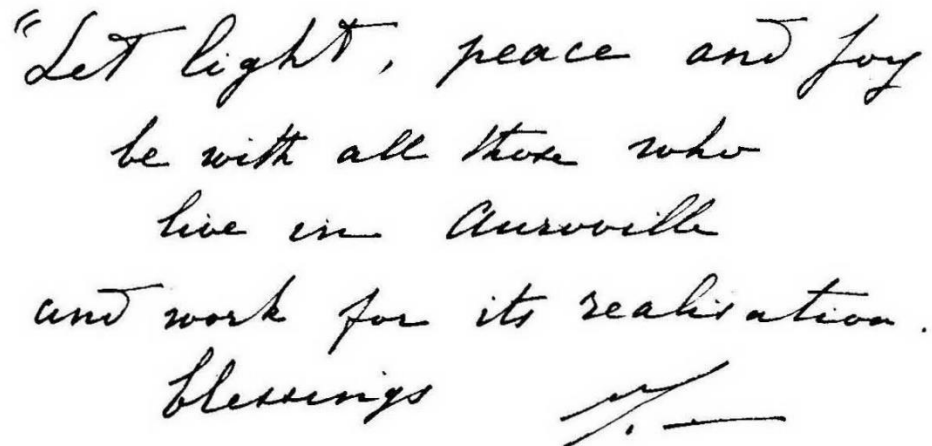 "Let light, peace and joy
be with all those who
live in Auroville
and work for its realisation.
blessings